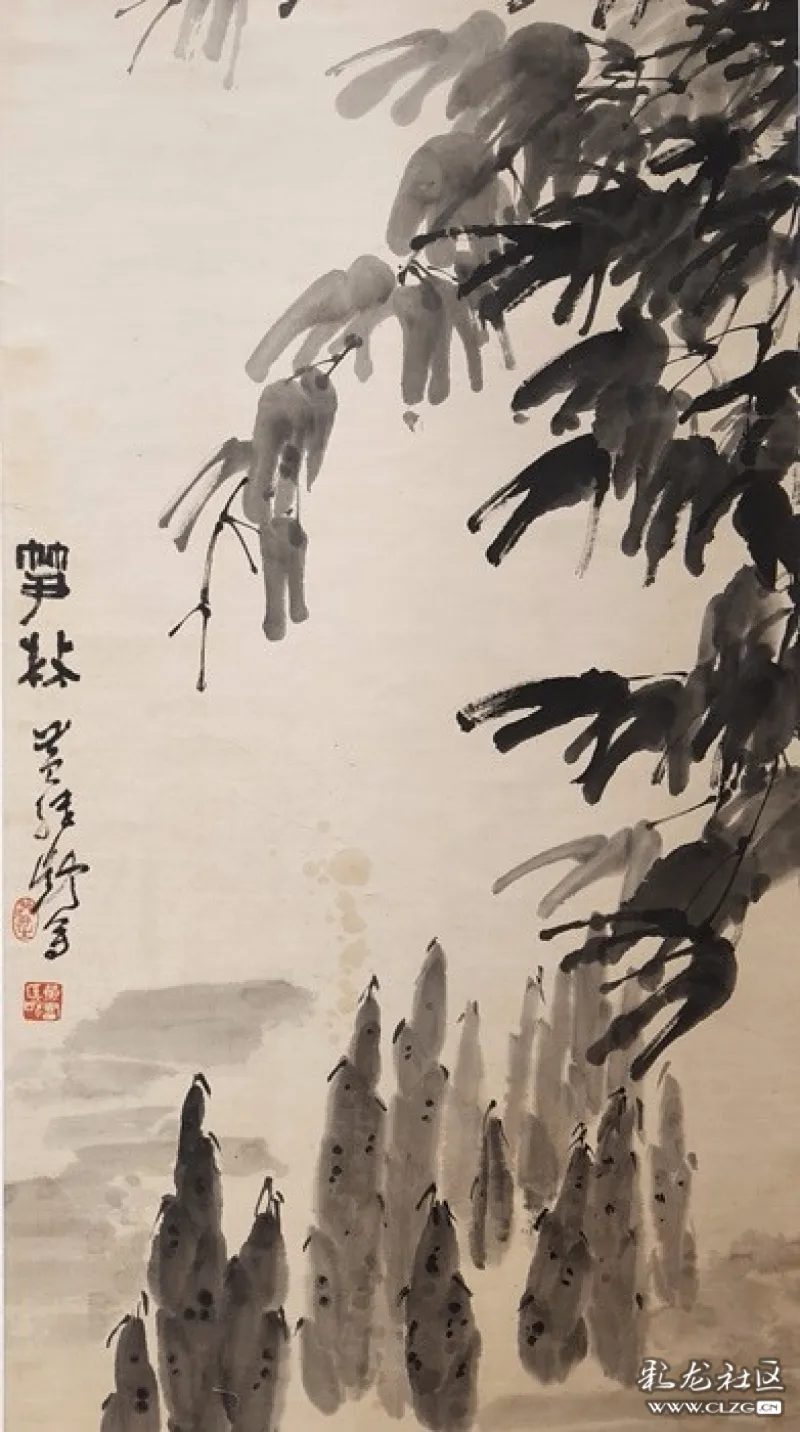 笋林
黄继龄写
彩龙社区
WWW.CLZG.CN